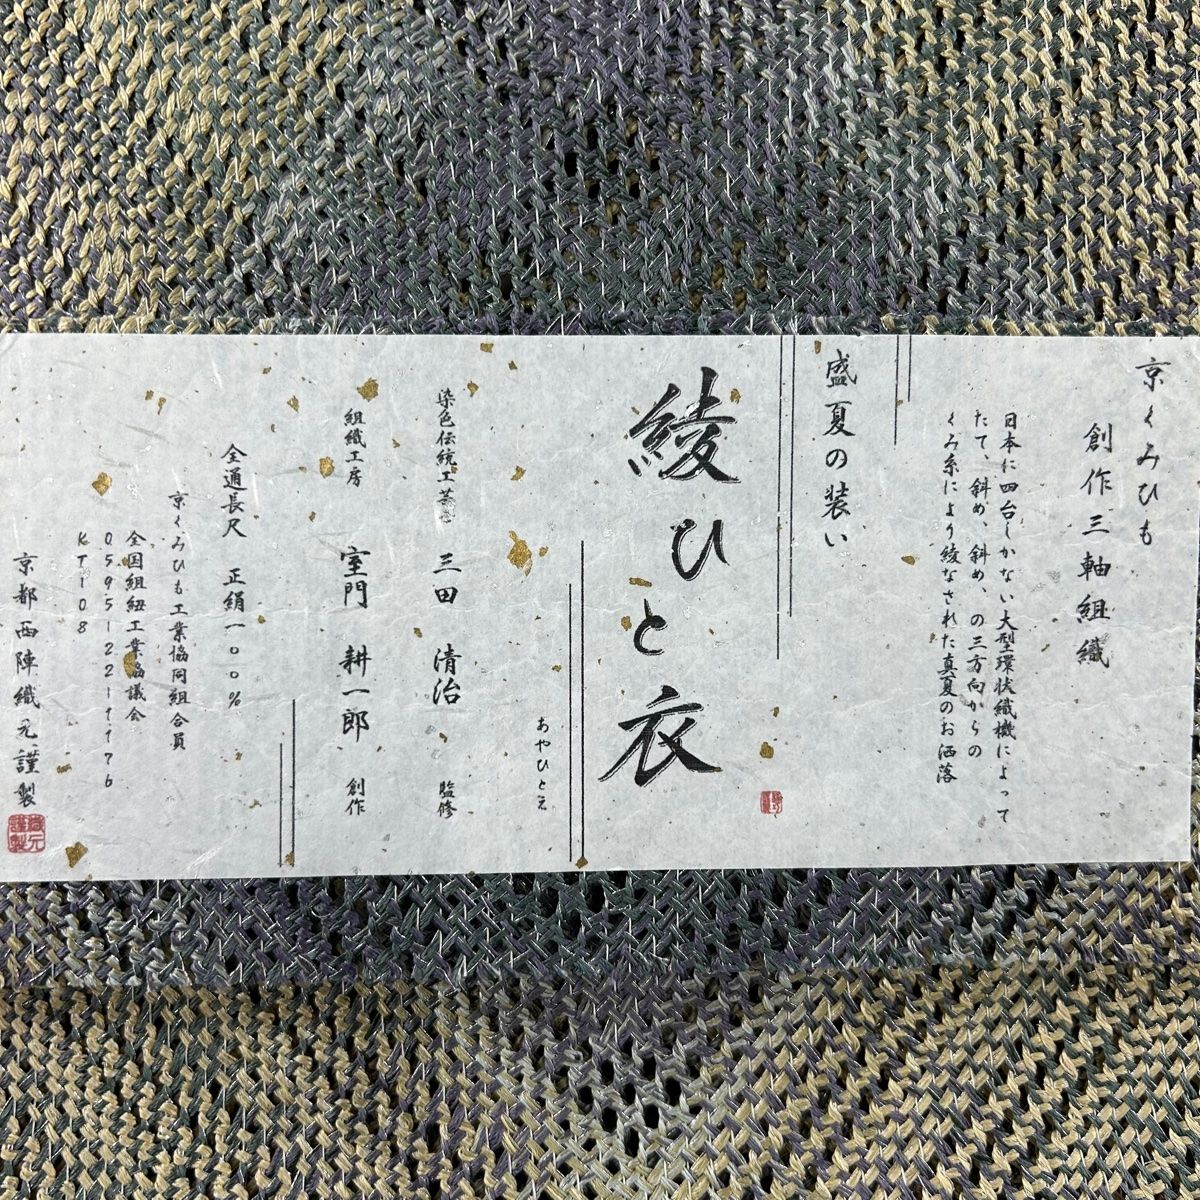 京くみひも
創作三軸組織
日本に四台しかない大型環状織機によって
たて、斜め、斜め、の三方向からの
くみ糸により綾なされた真夏のお洒落
盛夏の装い
綾ひと衣
あやひとえ
染色伝統工芸士 三田 清治 監修
組織工房 室門 耕一郎 創作
全通長尺 正絹一〇〇%
京くみひも工業協同組合員
全国組紐工業協議会
0595-22-1976
KT108
京都西陣織元謹製
織元謹製